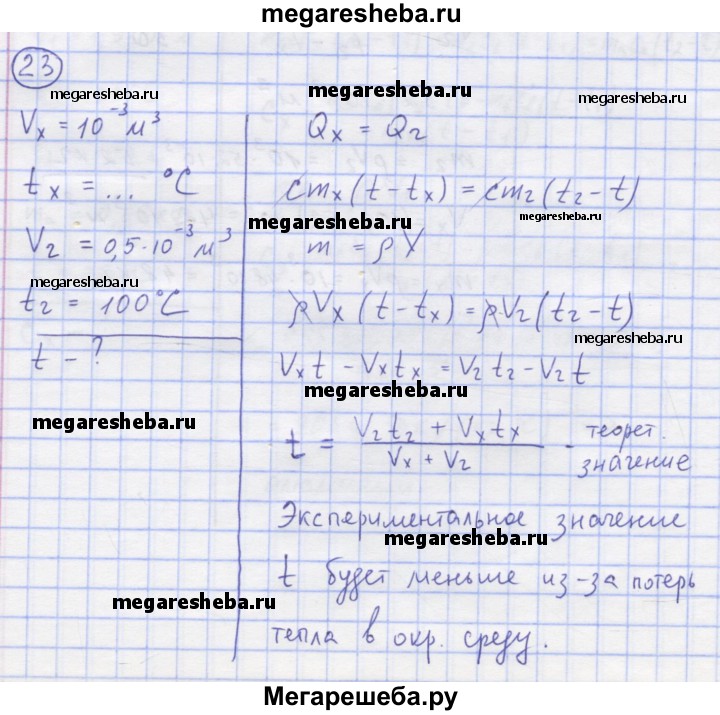 megaresheba.ru
23
megaresheba.ru
megaresheba.ru
Vₓ = 10⁻³ м³
Qₓ = Q₂
megaresheba.ru
tₓ = ... °C
cmₓ(t - tₓ) = cm₂(t₂ - t)
megaresheba.ru
V₂ = 0,5·10⁻³ м³
m = ρV
megaresheba.ru
megaresheba.ru
t₂ = 100°C
ρVₓ(t - tₓ) = ρV₂(t₂ - t)
megaresheba.ru
t - ?
Vₓt - Vₓtₓ = V₂t₂ - V₂t
megaresheba.ru
megaresheba.ru
t = (V₂t₂ + Vₓtₓ) / (Vₓ + V₂) - теорет.
значение
Экспериментальное значение
megaresheba.ru
t будет меньше из-за потерь
megaresheba.ru
тепла в окр. среду.
Мегарешеба.ру